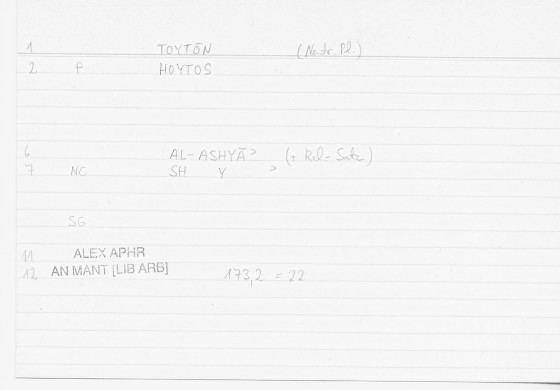 1 TOYTŌN (Neutr. Pl.)
2 P HOYTOS
6 AL-ASHYĀʾ (+ Rel-Satz)
7 NC SH Y ʾ
SG
11 ALEX APHR
12 AN MANT [LIB ARB] 173,2 = 22